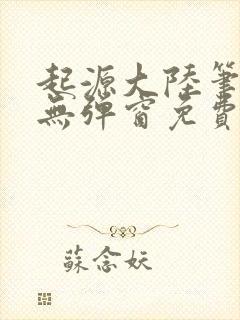 起源大陸筆
無彈窗免費
蘇念妖